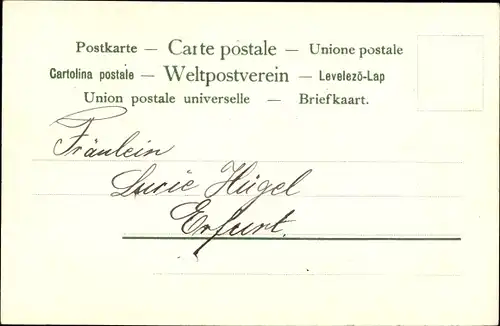 Postkarte — Carte postale — Unione postale
Cartolina postale — Weltpostverein — Levelező-Lap
Union postale universelle — Briefkaart.
Fräulein
Lucie Hügel
Erfurt.